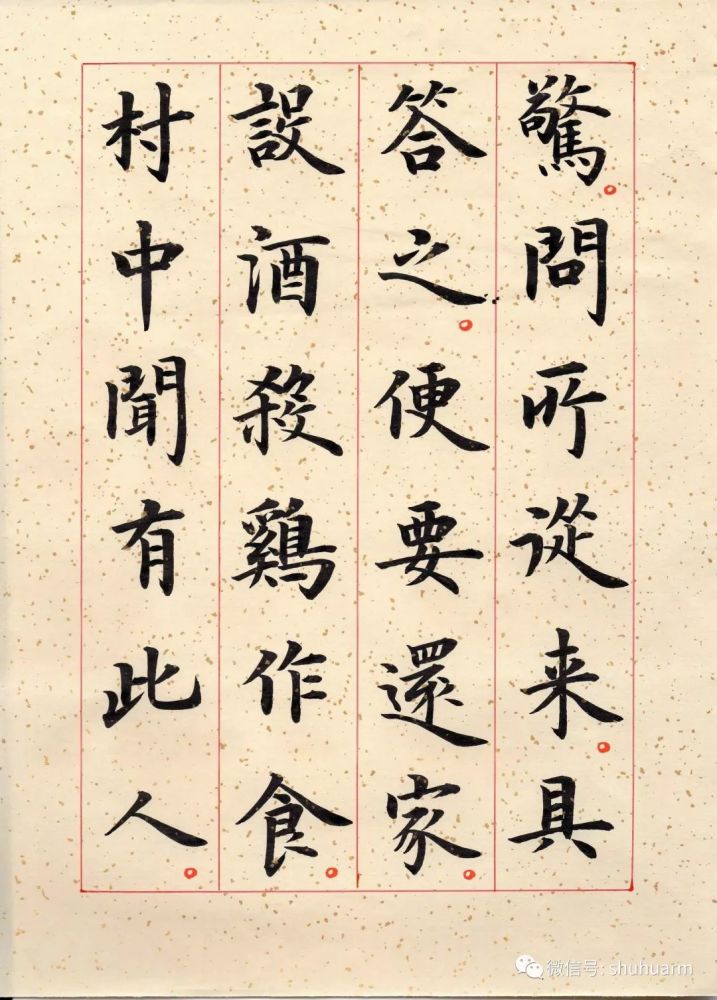 驚。問所從来。具
答之。便要還家。
設酒殺鷄作食。
村中聞有此人。
微信号: shuhuarm